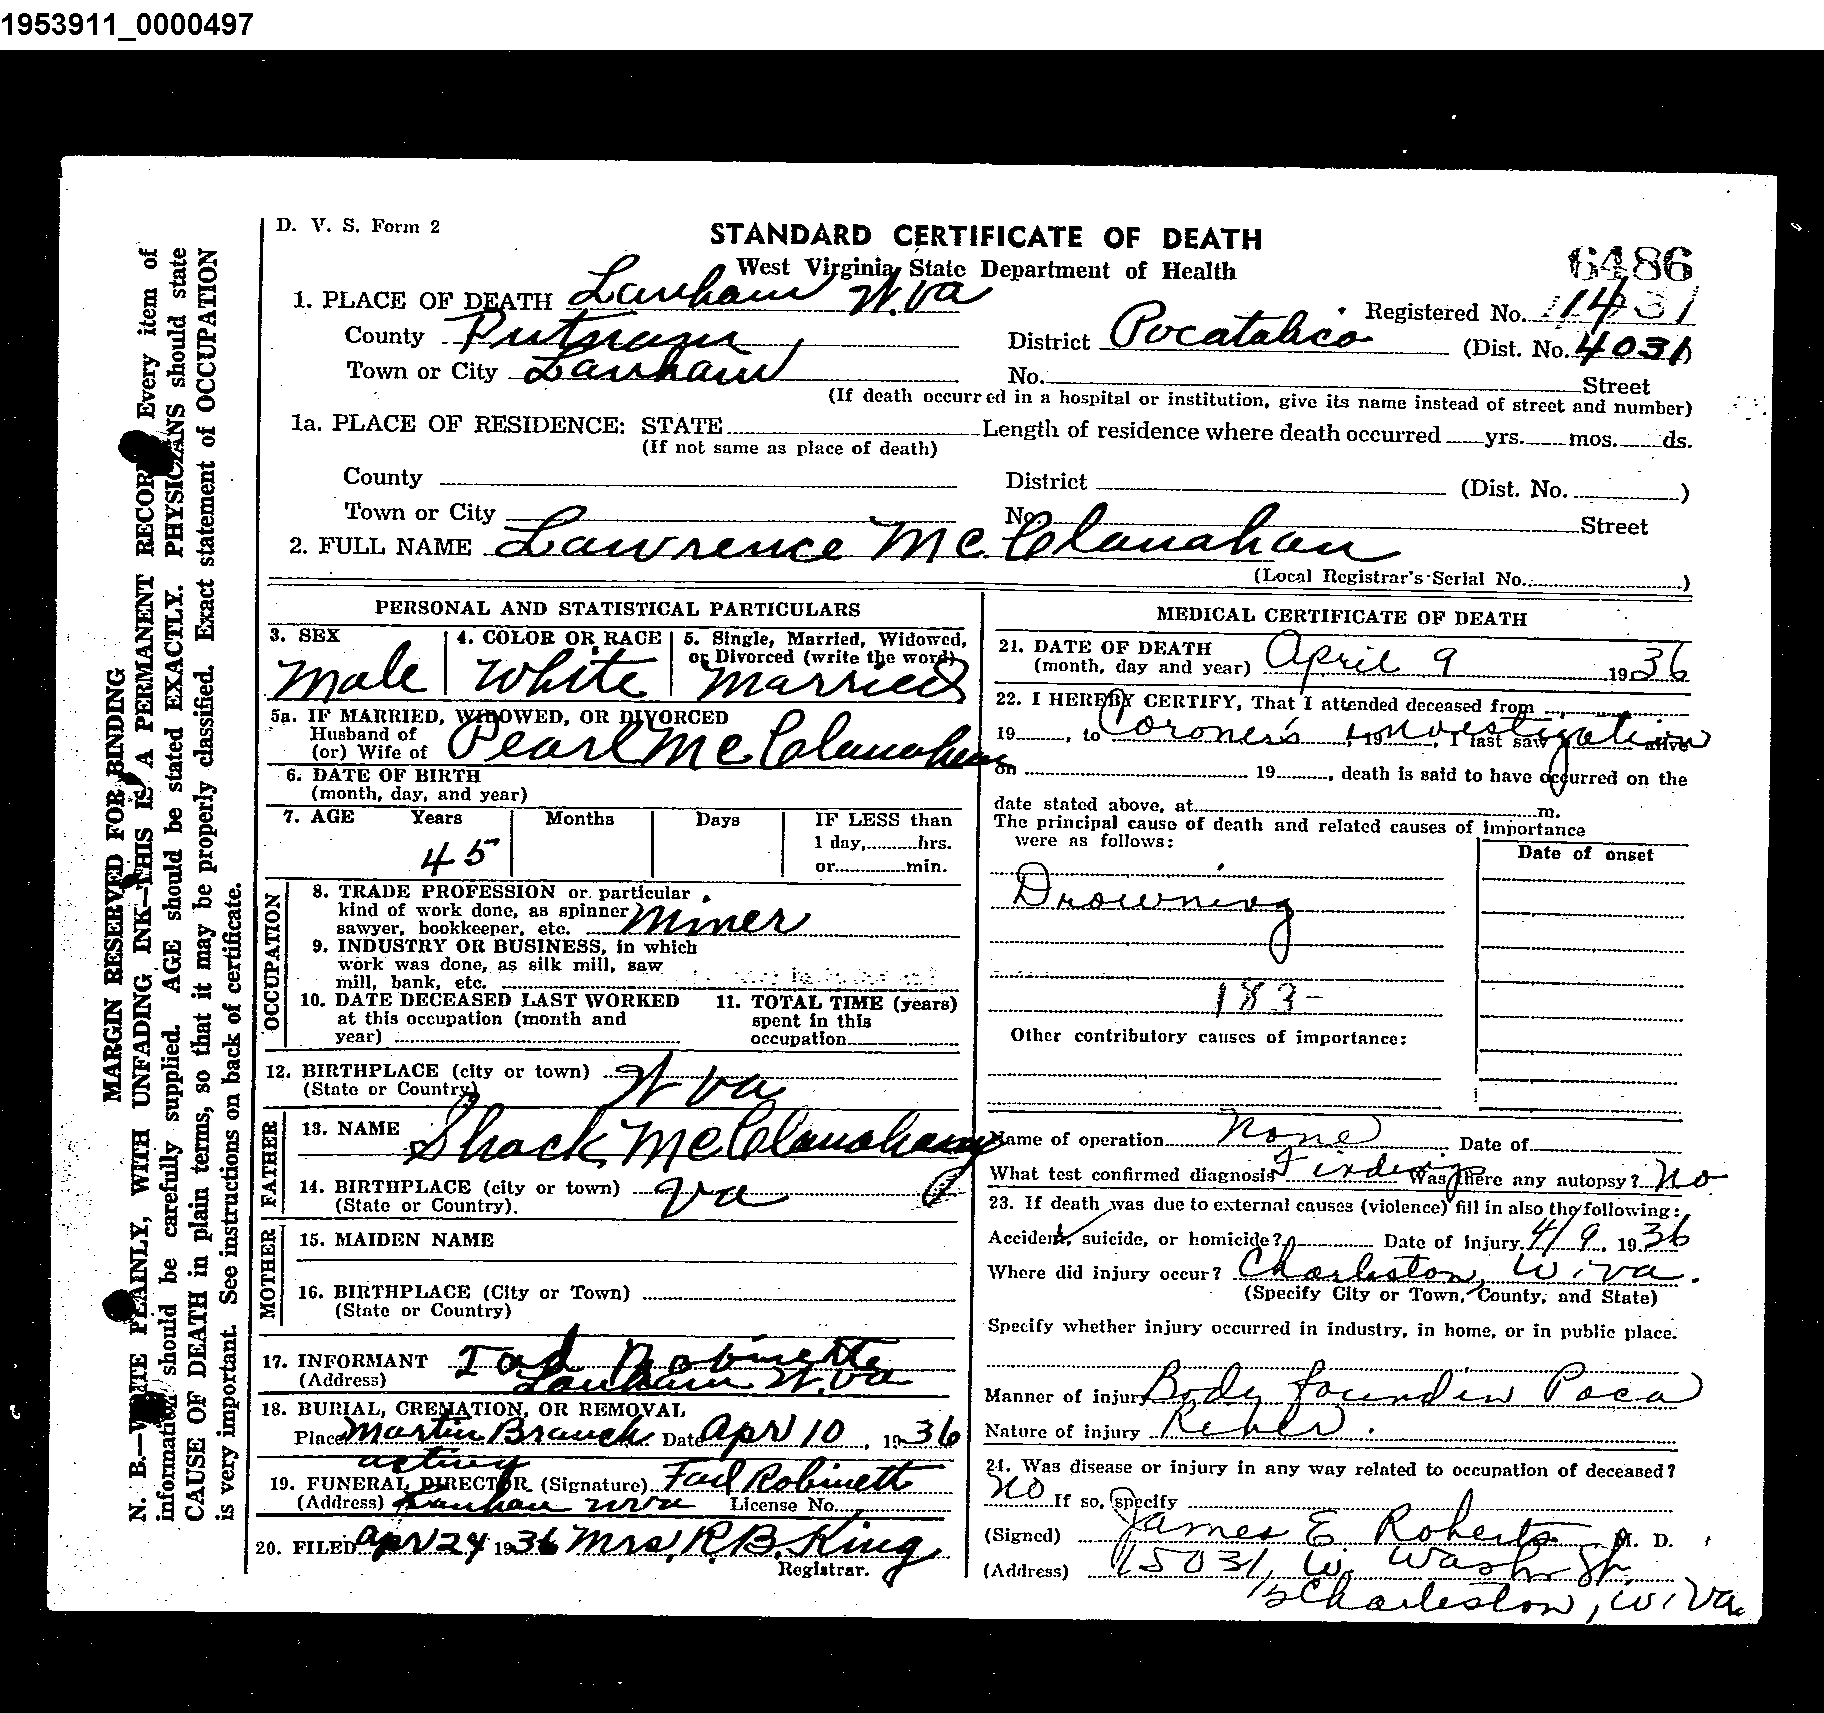 1953911_0000497
D. V. S. Form 2
STANDARD CERTIFICATE OF DEATH
West Virginia State Department of Health
6486
1. PLACE OF DEATH Lanham W. Va
Registered No. 1431
County Putnam
District Pocatalico (Dist. No. 4031)
Town or City Lanham
No. Street
(If death occurred in a hospital or institution, give its name instead of street and number)
1a. PLACE OF RESIDENCE: STATE Length of residence where death occurred yrs. mos. ds.
(If not same as place of death)
County District (Dist. No. )
Town or City No. Street
2. FULL NAME Lawrence McClanahan
(Local Registrar's Serial No. )
PERSONAL AND STATISTICAL PARTICULARS
3. SEX 4. COLOR OR RACE 5. Single, Married, Widowed,
or Divorced (write the word)
Male White Married
5a. IF MARRIED, WIDOWED, OR DIVORCED
Husband of
(or) Wife of Pearl McClanahan
6. DATE OF BIRTH
(month, day, and year)
7. AGE Years Months Days IF LESS than
1 day, hrs.
or min.
45
OCCUPATION
8. TRADE PROFESSION or particular
kind of work done, as spinner
sawyer, bookkeeper, etc. Miner
9. INDUSTRY OR BUSINESS, in which
work was done, as silk mill, saw
mill, bank, etc.
10. DATE DECEASED LAST WORKED
at this occupation (month and
year)
11. TOTAL TIME (years)
spent in this
occupation
12. BIRTHPLACE (city or town) W Va
(State or Country)
FATHER
13. NAME Shack McClanahan
14. BIRTHPLACE (city or town) Va
(State or Country).
MOTHER
15. MAIDEN NAME
16. BIRTHPLACE (City or Town)
(State or Country)
17. INFORMANT Tad Robinette
(Address) Lanham W. Va
18. BURIAL, CREMATION, OR REMOVAL
Place Martin Branch Date Apr 10, 1936
acting
19. FUNERAL DIRECTOR (Signature) Tad Robinett
(Address) Lanham W Va License No.
20. FILED Apr 24 1936 Mrs. R. B. King
Registrar.
MEDICAL CERTIFICATE OF DEATH
21. DATE OF DEATH
(month, day and year) April 9 1936
22. I HEREBY CERTIFY, That I attended deceased from
19 , to Coroner's investigation , 19 , I last saw alive
on 19 , death is said to have occurred on the
date stated above, at m.
The principal cause of death and related causes of importance
were as follows:
Date of onset
Drowning
183-
Other contributory causes of importance:
Name of operation None Date of
What test confirmed diagnosis Finding Was there any autopsy? No
23. If death was due to external causes (violence) fill in also the following:
Accident, suicide, or homicide? Date of injury 4/9, 1936
Where did injury occur? Charleston, W. Va.
(Specify City or Town, County, and State)
Specify whether injury occurred in industry, in home, or in public place.
Manner of injury Body found in Poca
Nature of injury River.
24. Was disease or injury in any way related to occupation of deceased?
No If so, specify
(Signed) James E. Roberts M. D.
(Address) 1503 W. Wash St.
Charleston, W. Va.
MARGIN RESERVED FOR BINDING
N. B.—WRITE PLAINLY, WITH UNFADING INK—THIS IS A PERMANENT RECORD Every item of
information should be carefully supplied. AGE should be stated EXACTLY. PHYSICIANS should state
CAUSE OF DEATH in plain terms, so that it may be properly classified. Exact statement of OCCUPATION
is very important. See instructions on back of certificate.